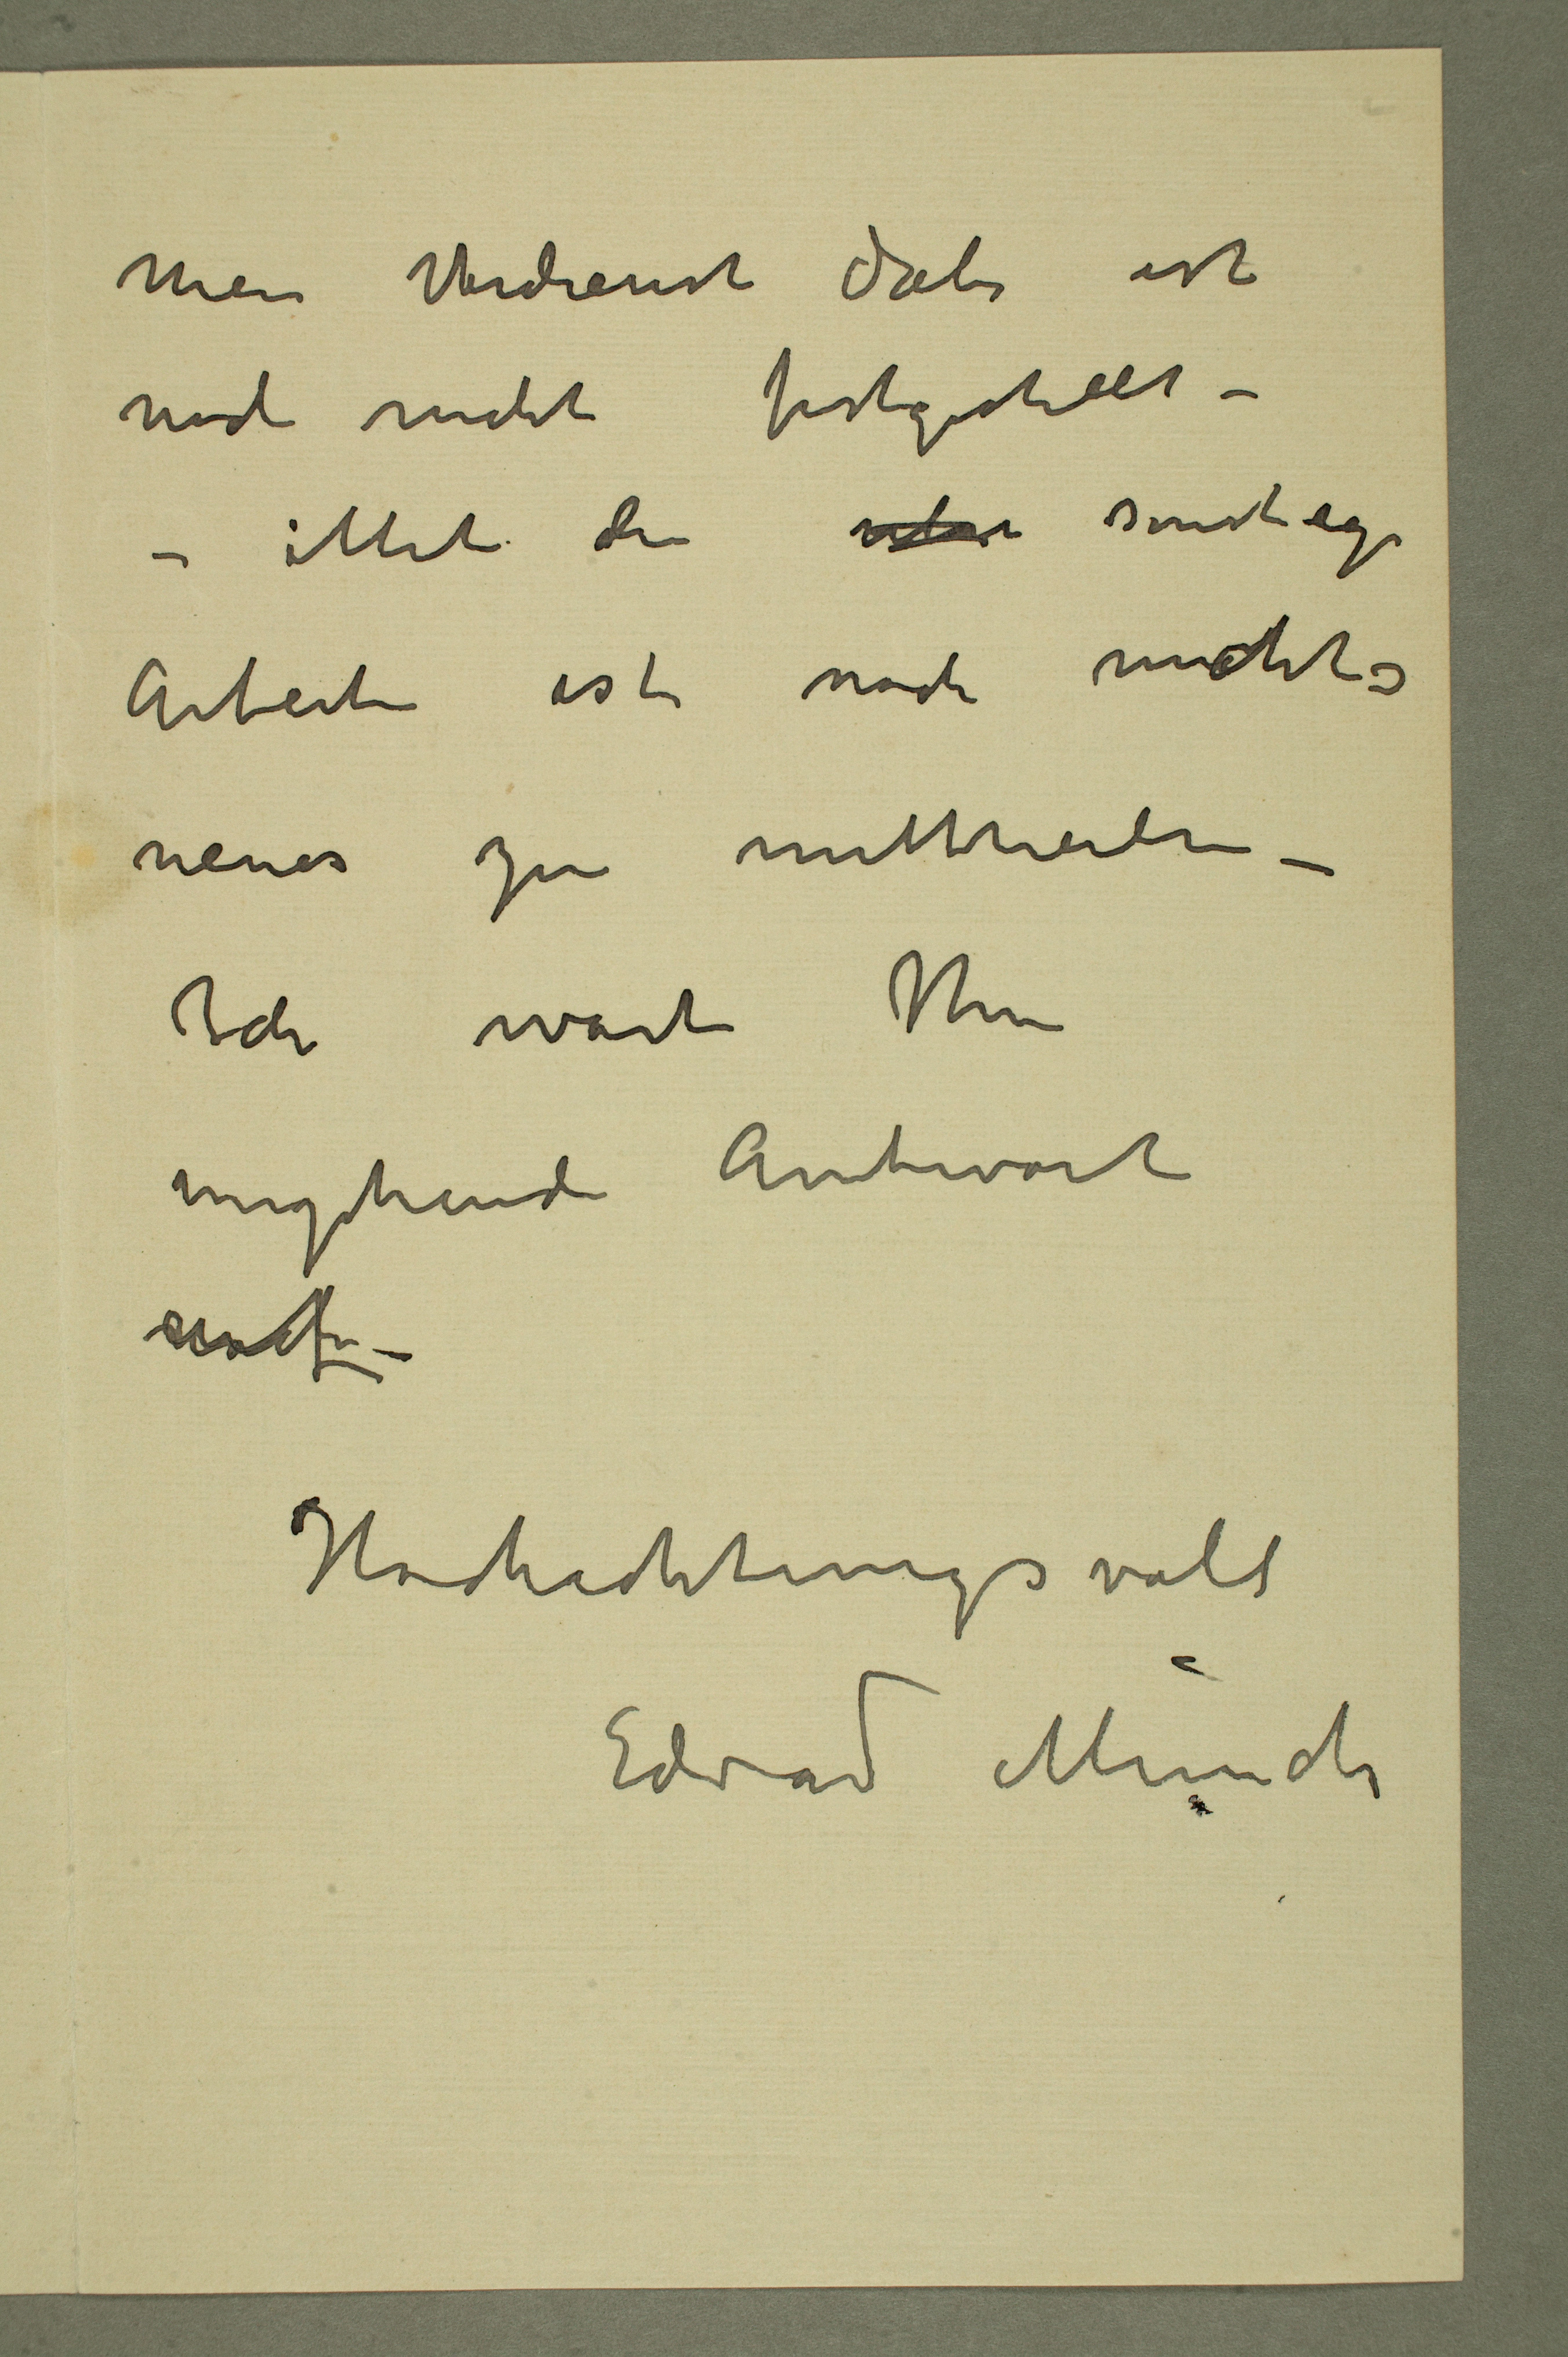 Mein Verdienst dabei ist
noch nicht festgestellt –
– Mit den sonstigen
Arbeiten ist noch nichts
neues zu mittheilen –
Ich warte Ihre
umgehende Antwort
Hochachtungsvoll
Edvard Munch